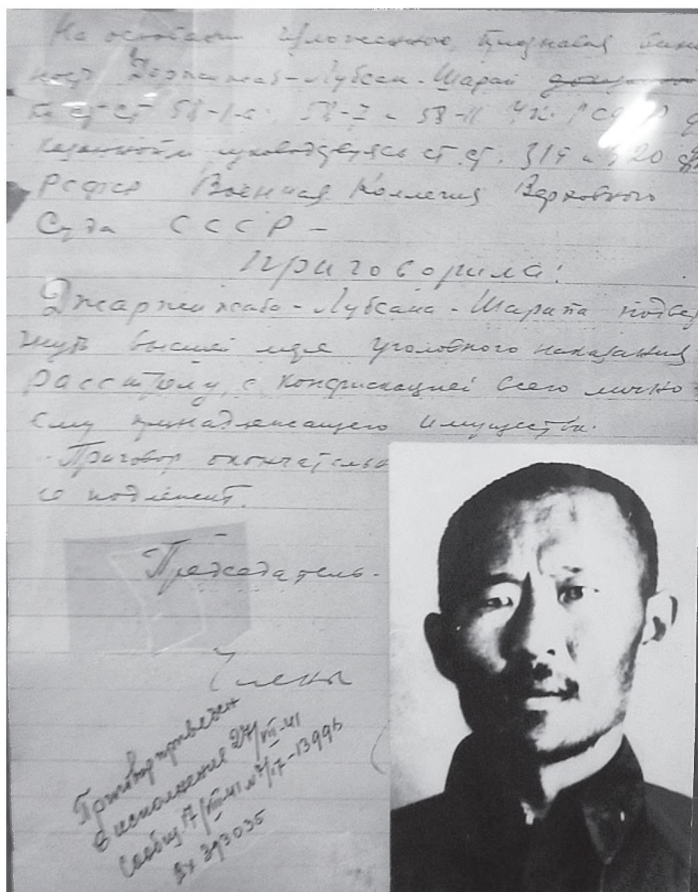 На основании изложенного, признавая винов
ность Доржижаб-Лубсан-Шарай
по ст.ст 58-1-а, 58-7 и 58-11 УК РСФСР
руководствуясь ст.ст. 319 и 320
РСФСР Военная Коллегия Верховного
Суда СССР –
приговорила:
Лубсана-Шарапа подвер
гнуть высшей мере уголовного наказания
расстрелу, с конфискацией всего лично
ему принадлежащего имущества.
Приговор окончательн
не подлежит.
Председатель-
Члены
Приговор приведен
в исполнение 27/VII-41
Сообщ 17/VIII-41
Вх 393035